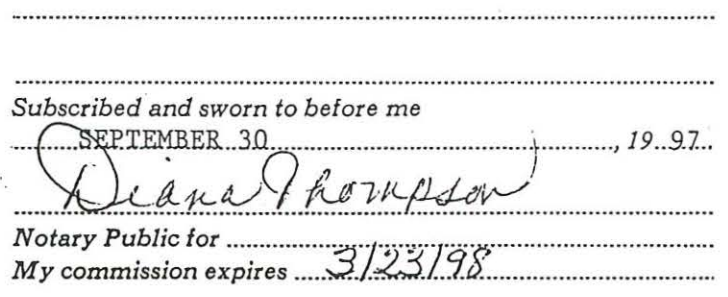 Subscribed and sworn to before me
SEPTEMBER 30, 19 97.
Diana Thompson
Notary Public for
My commission expires 3/23/98